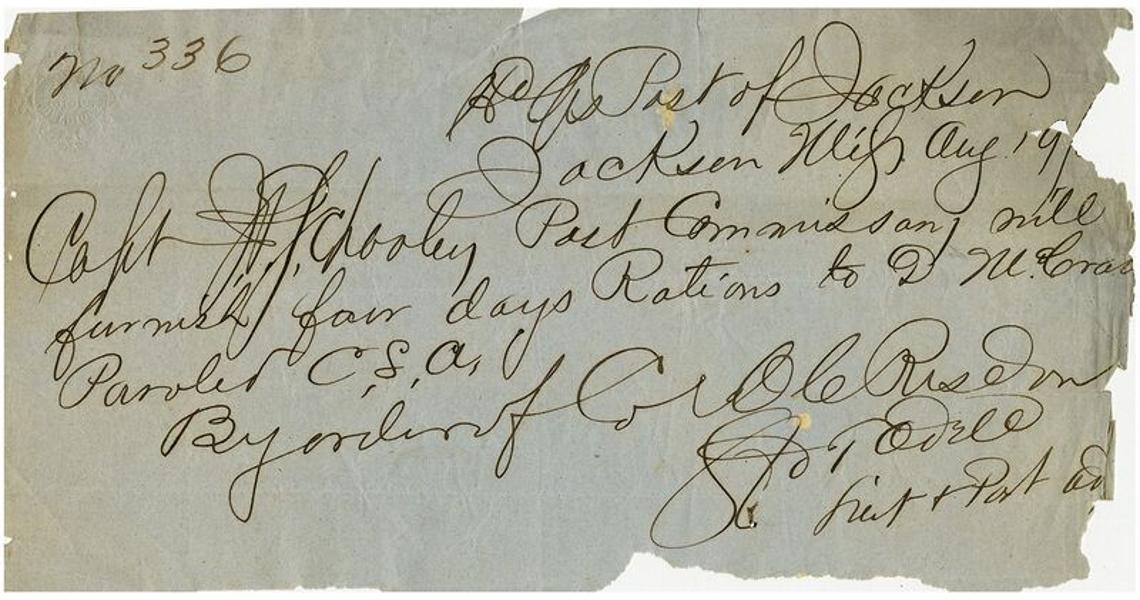 No 336
Hd Qrs Post of Jackson
Jackson Miss Aug 19
Capt Schooley Post Commissary will
furnish four days Rations to D McCraw
Paroled C,S,A,
By order of Col O C Risdon
Odell
Lieut & Post ad